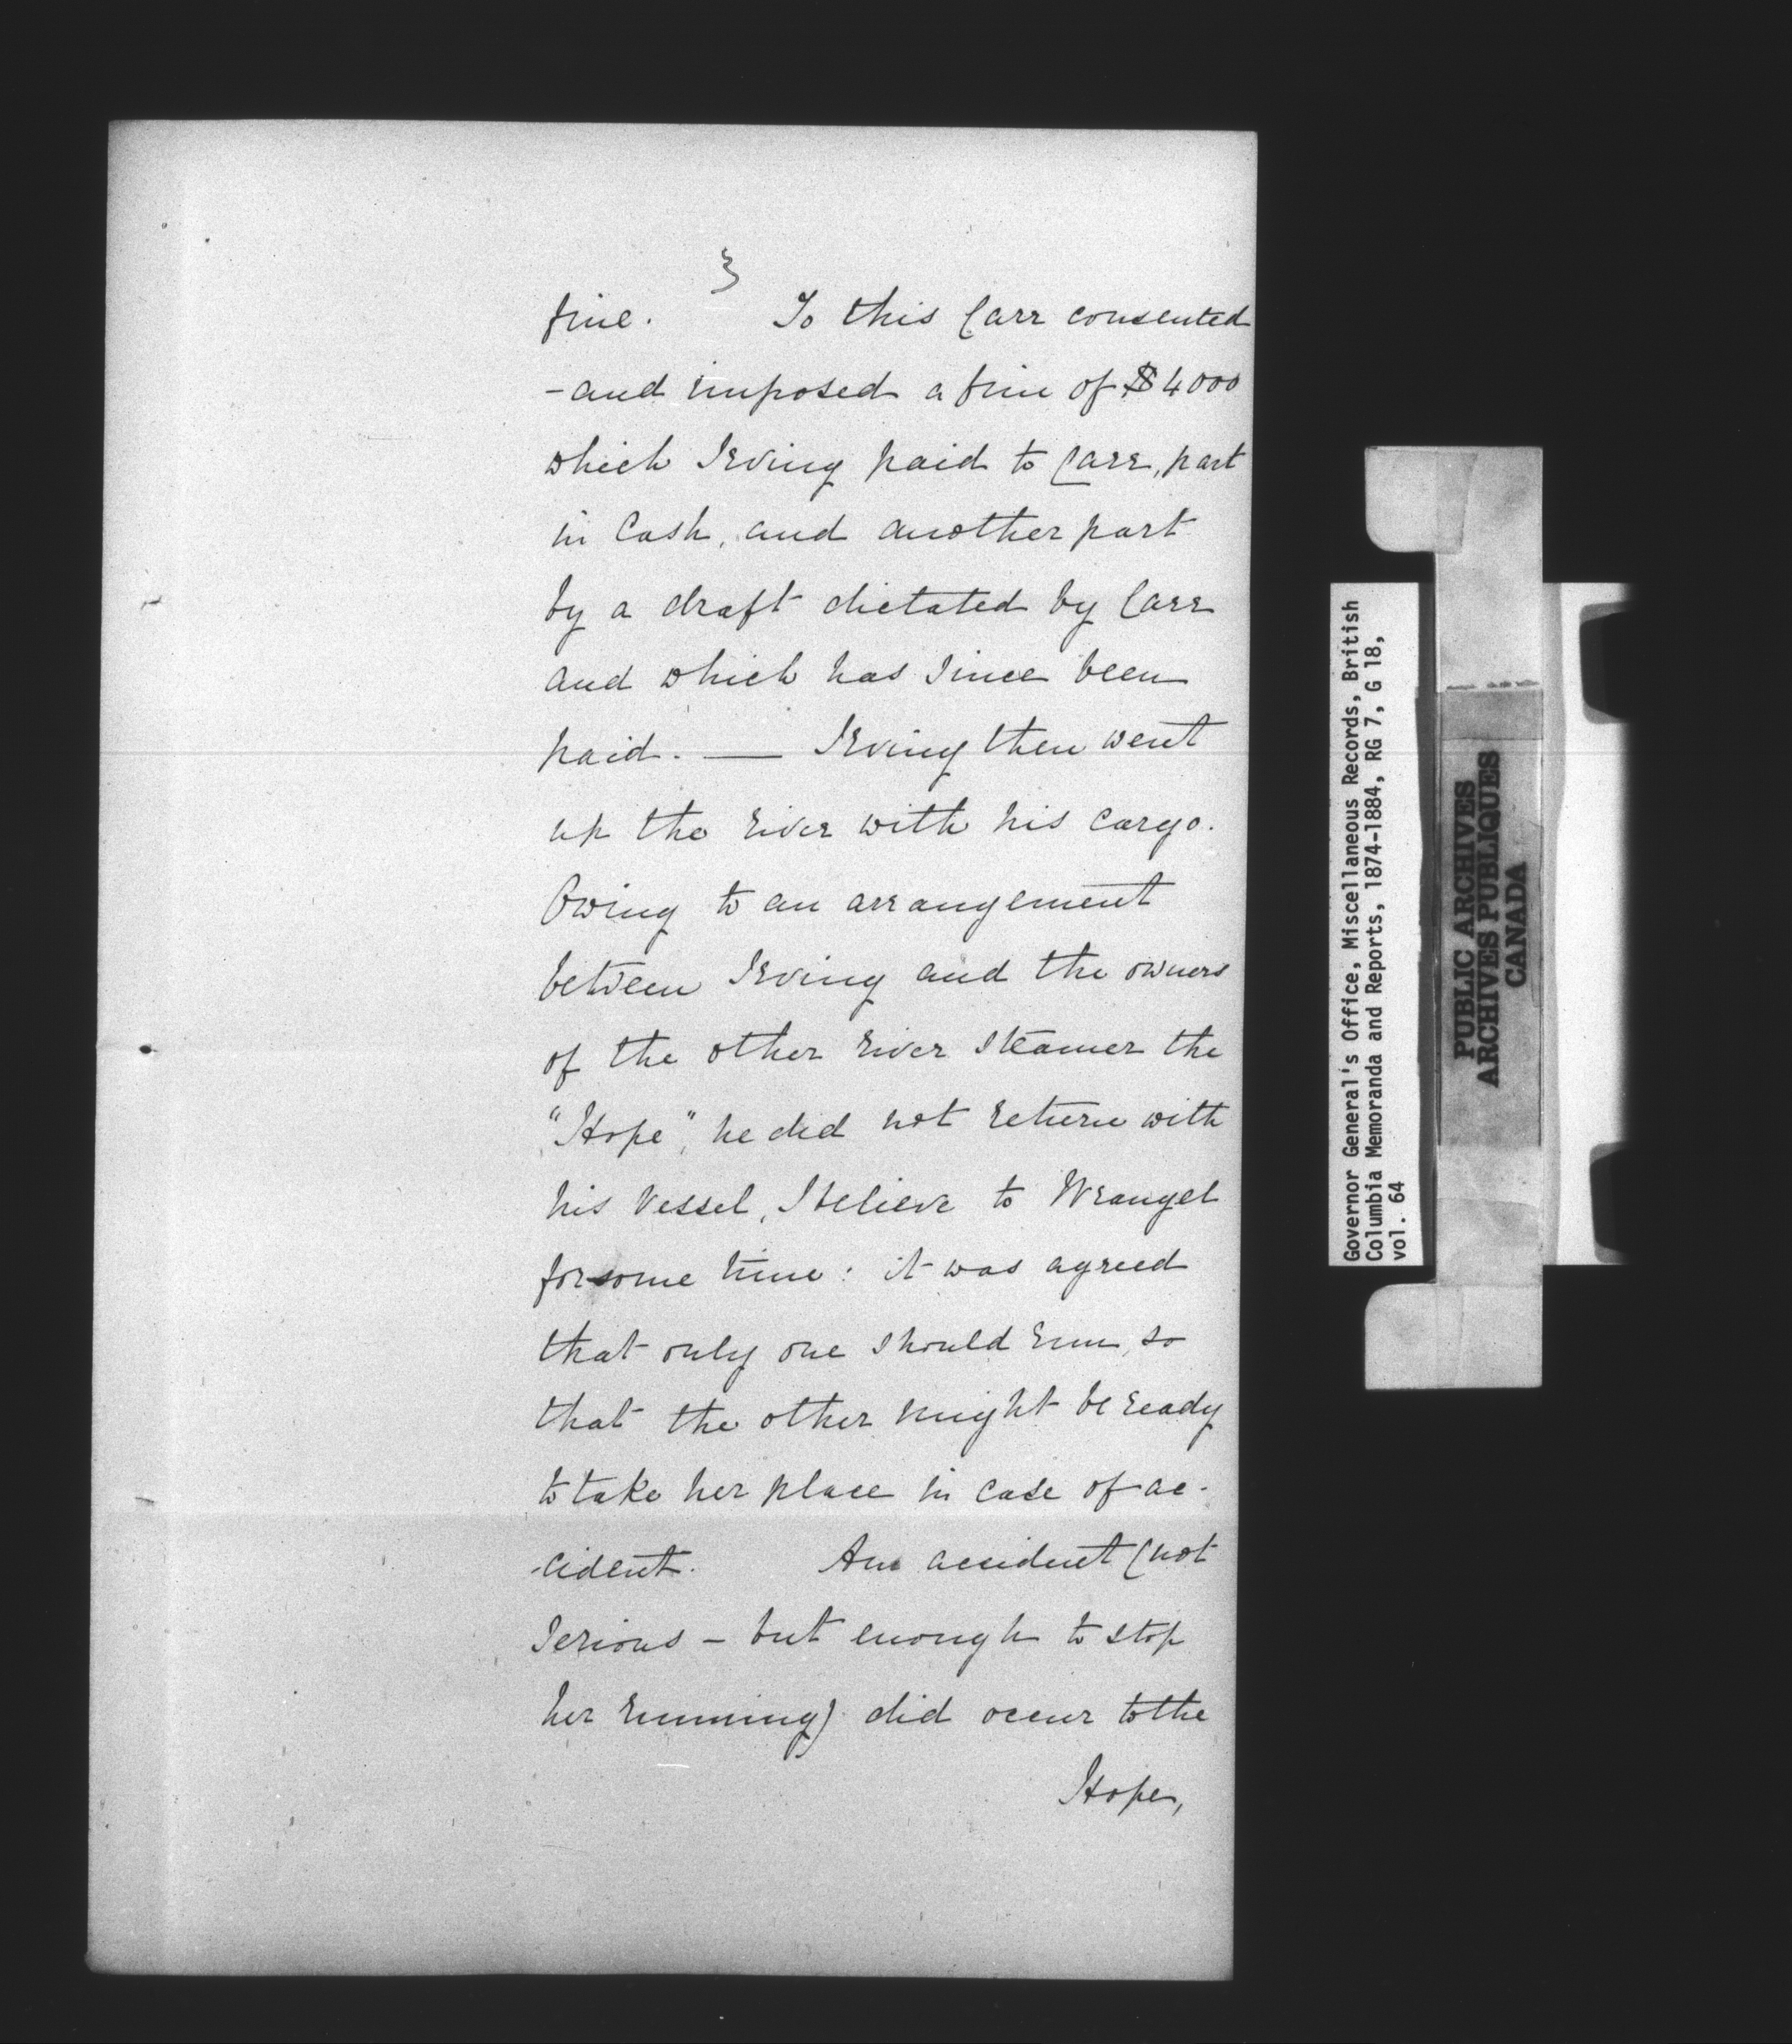 3
fine. To this Carr consented
- and imposed a fine of $4000
which Irving paid to Carr, part
in Cash, and another part
by a draft dictated by Carr
and which has since been
paid. — Irving then went
up the river with his cargo.
Owing to an arrangement
between Irving and the owners
of the other river steamer the
"Hope", he did not return with
his vessel, I believe to Wrangel
for some time: it was agreed
that only one should run, so
that the other might be ready
to take her place in case of ac-
-cident. An accident (not
serious - but enough to stop
her running) did occur to the
Hope,
Governor General's Office, Miscellaneous Records, British
Columbia Memoranda and Reports, 1874-1884, RG 7, G 18,
vol. 64
PUBLIC ARCHIVES
ARCHIVES PUBLIQUES
CANADA